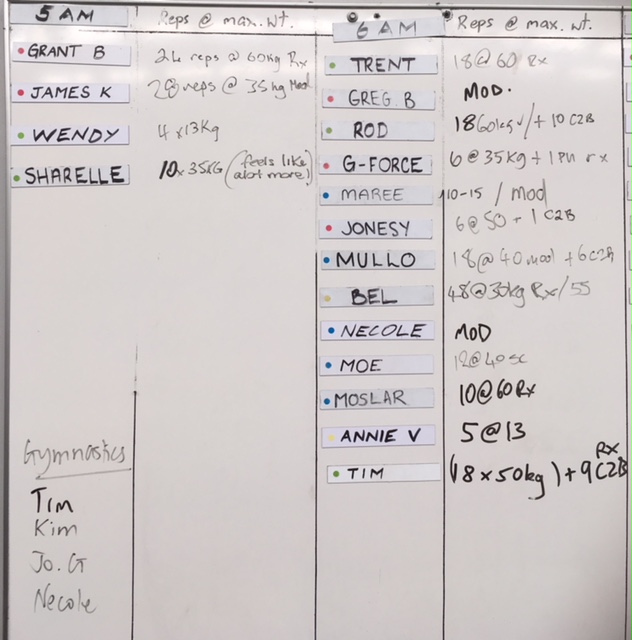 5 AM
Reps @ max. wt.
GRANT B
24 reps @ 60kg Rx
JAMES K
28 reps @ 35kg Mod
WENDY
4 x13kg
SHARELLE
10x35KG (feels like
alot more!)
Gymnastics
Tim
Kim
Jo. G
Necole
6 AM
Reps @ max. wt.
TRENT
18@60 Rx
GREG. B
MOD.
ROD
18 60kg /+ 10 C2B
G-FORCE
6@35kg + 1 rx
MAREE
10-15 / mod
JONESY
6@50 + 1 C2B
MULLO
18@40 mod + 6 C2B
BEL
48@30kg Rx/55
NECOLE
MOD
MOE
12@40 sc
MOSLAR
10@60 Rx
ANNIE V
5@13
TIM
(18 x 50kg) + 9 C2B
RX